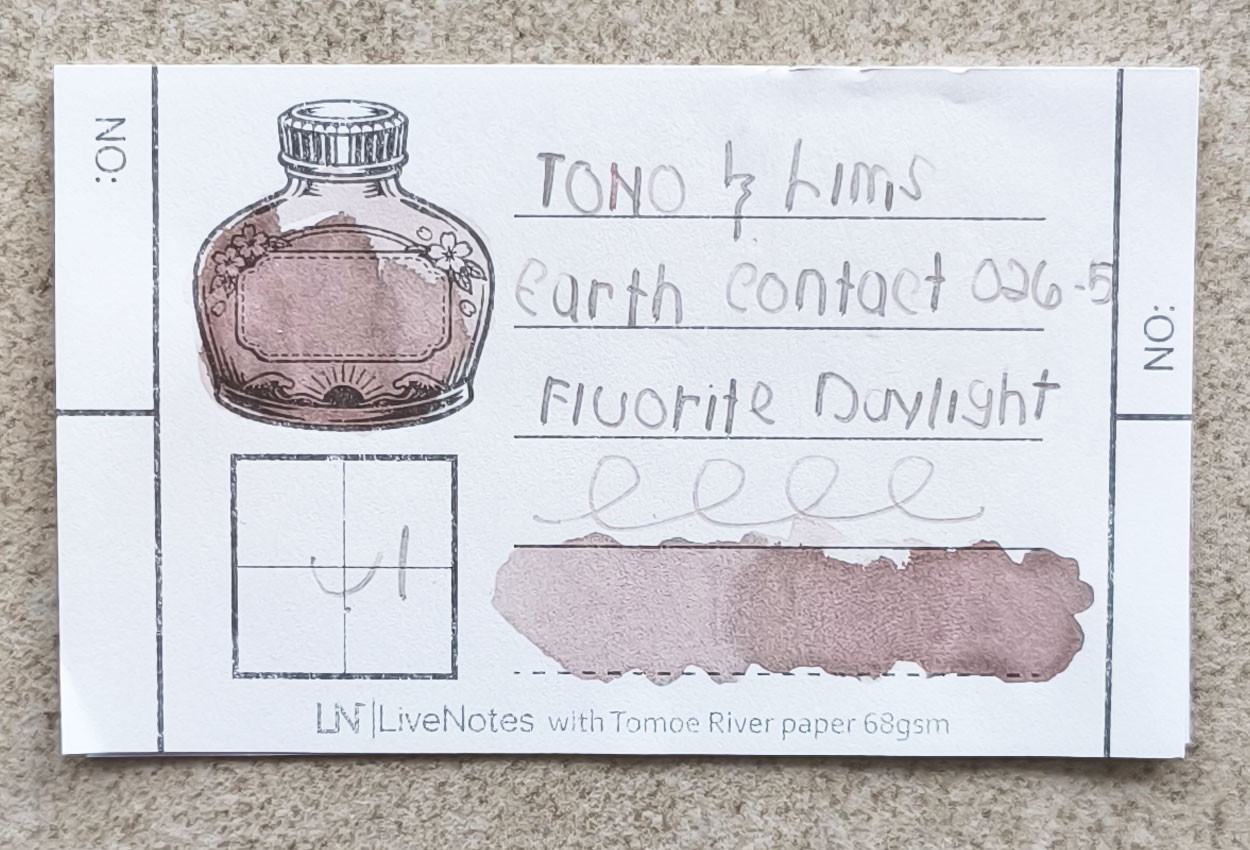 NO:
TONO & Lims
Earth Contact 026-5
Fluorite Daylight
NO:
LN|LiveNotes with Tomoe River paper 68gsm